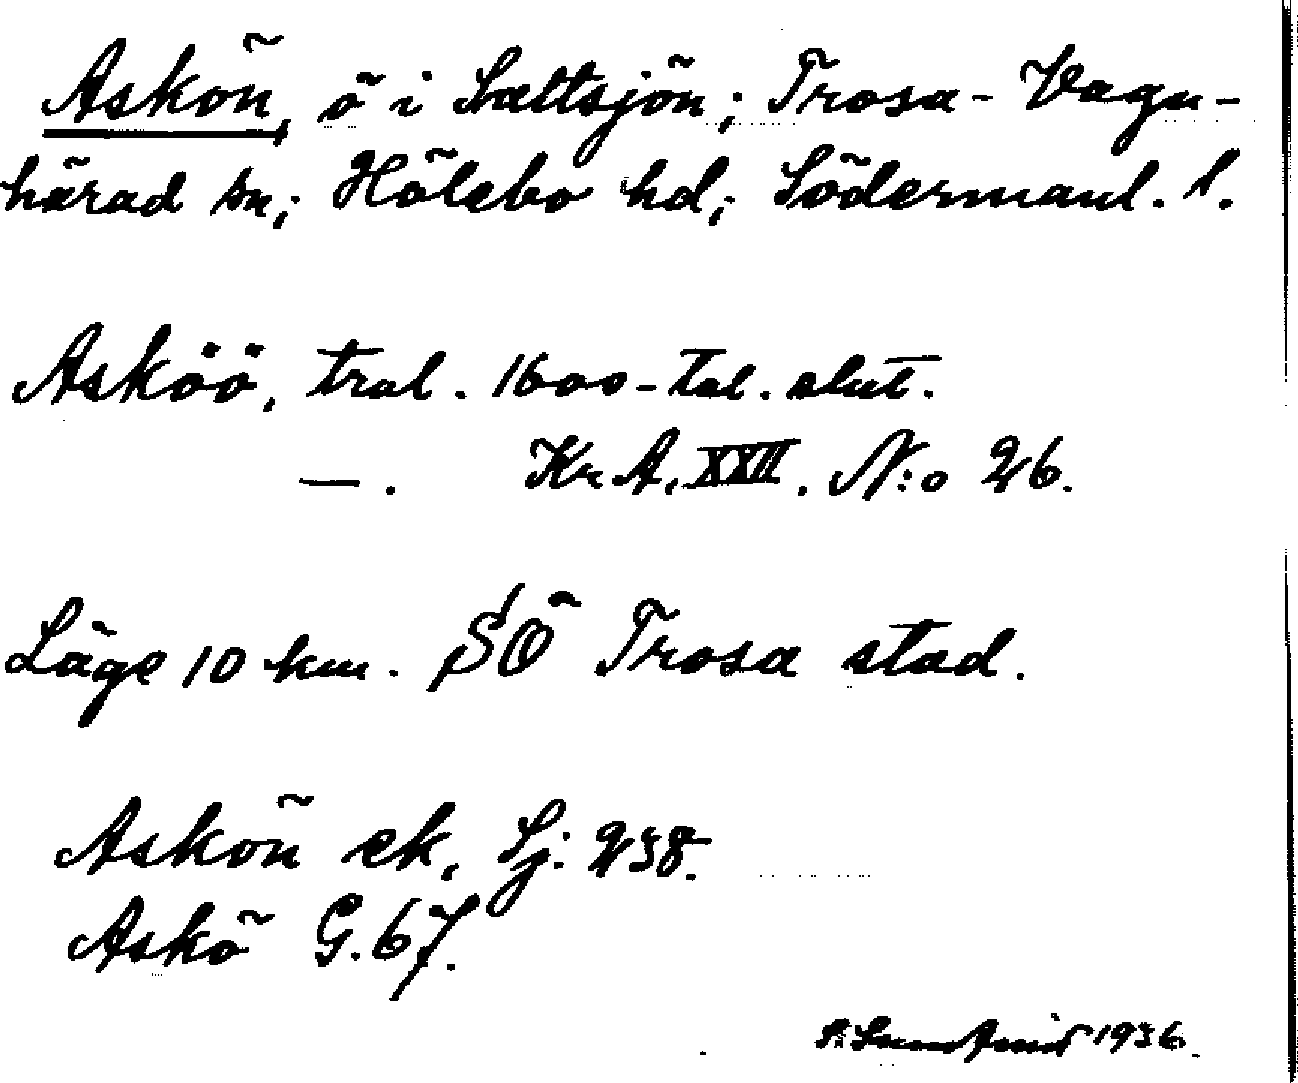 Askön, ö i Saltsjön; Trosa-Vagn-
härad sn; Hölebo hd; Södermanl. l.
Asköö, trol. 1600-tal. slut.
— . Kr. A. XXII. N:o 26.
Läge 10 km. SÖ Trosa stad.
Askön ek. Lj: 238.
Askö G. 67.
1936.